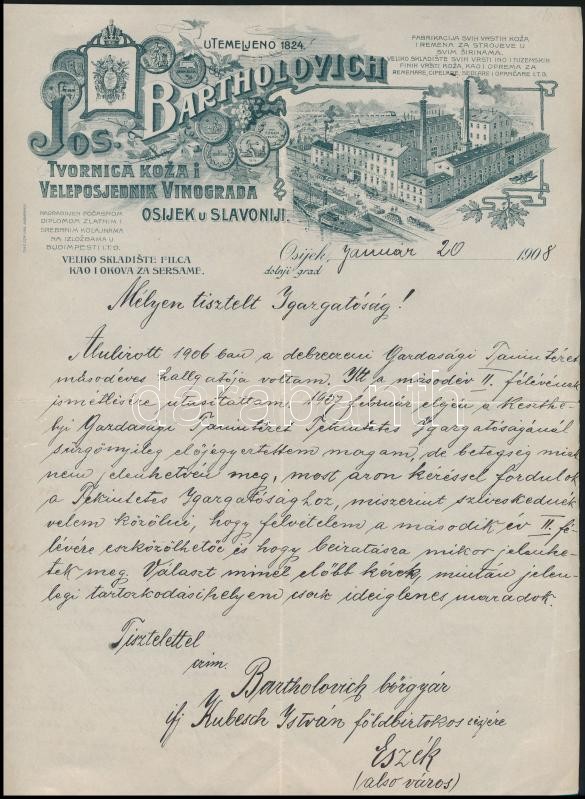 UTEMELJENO 1824.
JOS. BARTHOLOVICH
TVORNICA KOŽA I
VELEPOSJEDNIK VINOGRADA
OSIJEK U SLAVONIJI.
NAGRADJEN POČASNOM
DIPLOMOM ZLATNIM I
SREBRNIM KOLAJNAMA
NA IZLOŽBAMA U
BUDIMPEŠTI I.T.D.
VELIKO SKLADIŠTE FILCA
KAO I OKOVA ZA SERSAME.
FABRIKACIJA SVIH VRSTIH KOŽA
I REMENA ZA STROJEVE U
SVIM ŠIRINAMA.
VELIKO SKLADIŠTE SVIH VRSTI INO I TUZEMSKIH
FINIH VRSTI KOŽA, KAO I OPREMA ZA
REMENARE, CIPELARE, SEDLARE I OPANČARE I.T.D.
Osijek, Január 20 1908
dolnji grad
Mélyen tisztelt Igazgatóság!
Alulírott 1906 ban a debreczeni Gazdasági Tanintézet
másodéves hallgatója voltam. Itt a másodév II. félévének
ismétlésére utasíttattam. 1907 február elején a Keszthe-
lyi Gazdasági Tanintézet Tekintetes Igazgatóságánál
sürgönyileg előjegyeztettem magam, de betegség miatt
nem jelenhetvén meg, most azon kéréssel fordulok
a Tekintetes Igazgatósághoz, miszerint szíveskednék
velem közölni, hogy felvételem a második év II. fé-
lévére eszközölhető és hogy beiratásra mikor jelenhe-
tek meg. Választ minél előbb kérek, miután jelen-
legi tartozkodási helyem csak ideiglenes maradok.
Tisztelettel
czim. Bartholovich bőrgyár
ifj Kubesch István földbirtokos czimére
Eszék
(alsó város)
darabanth